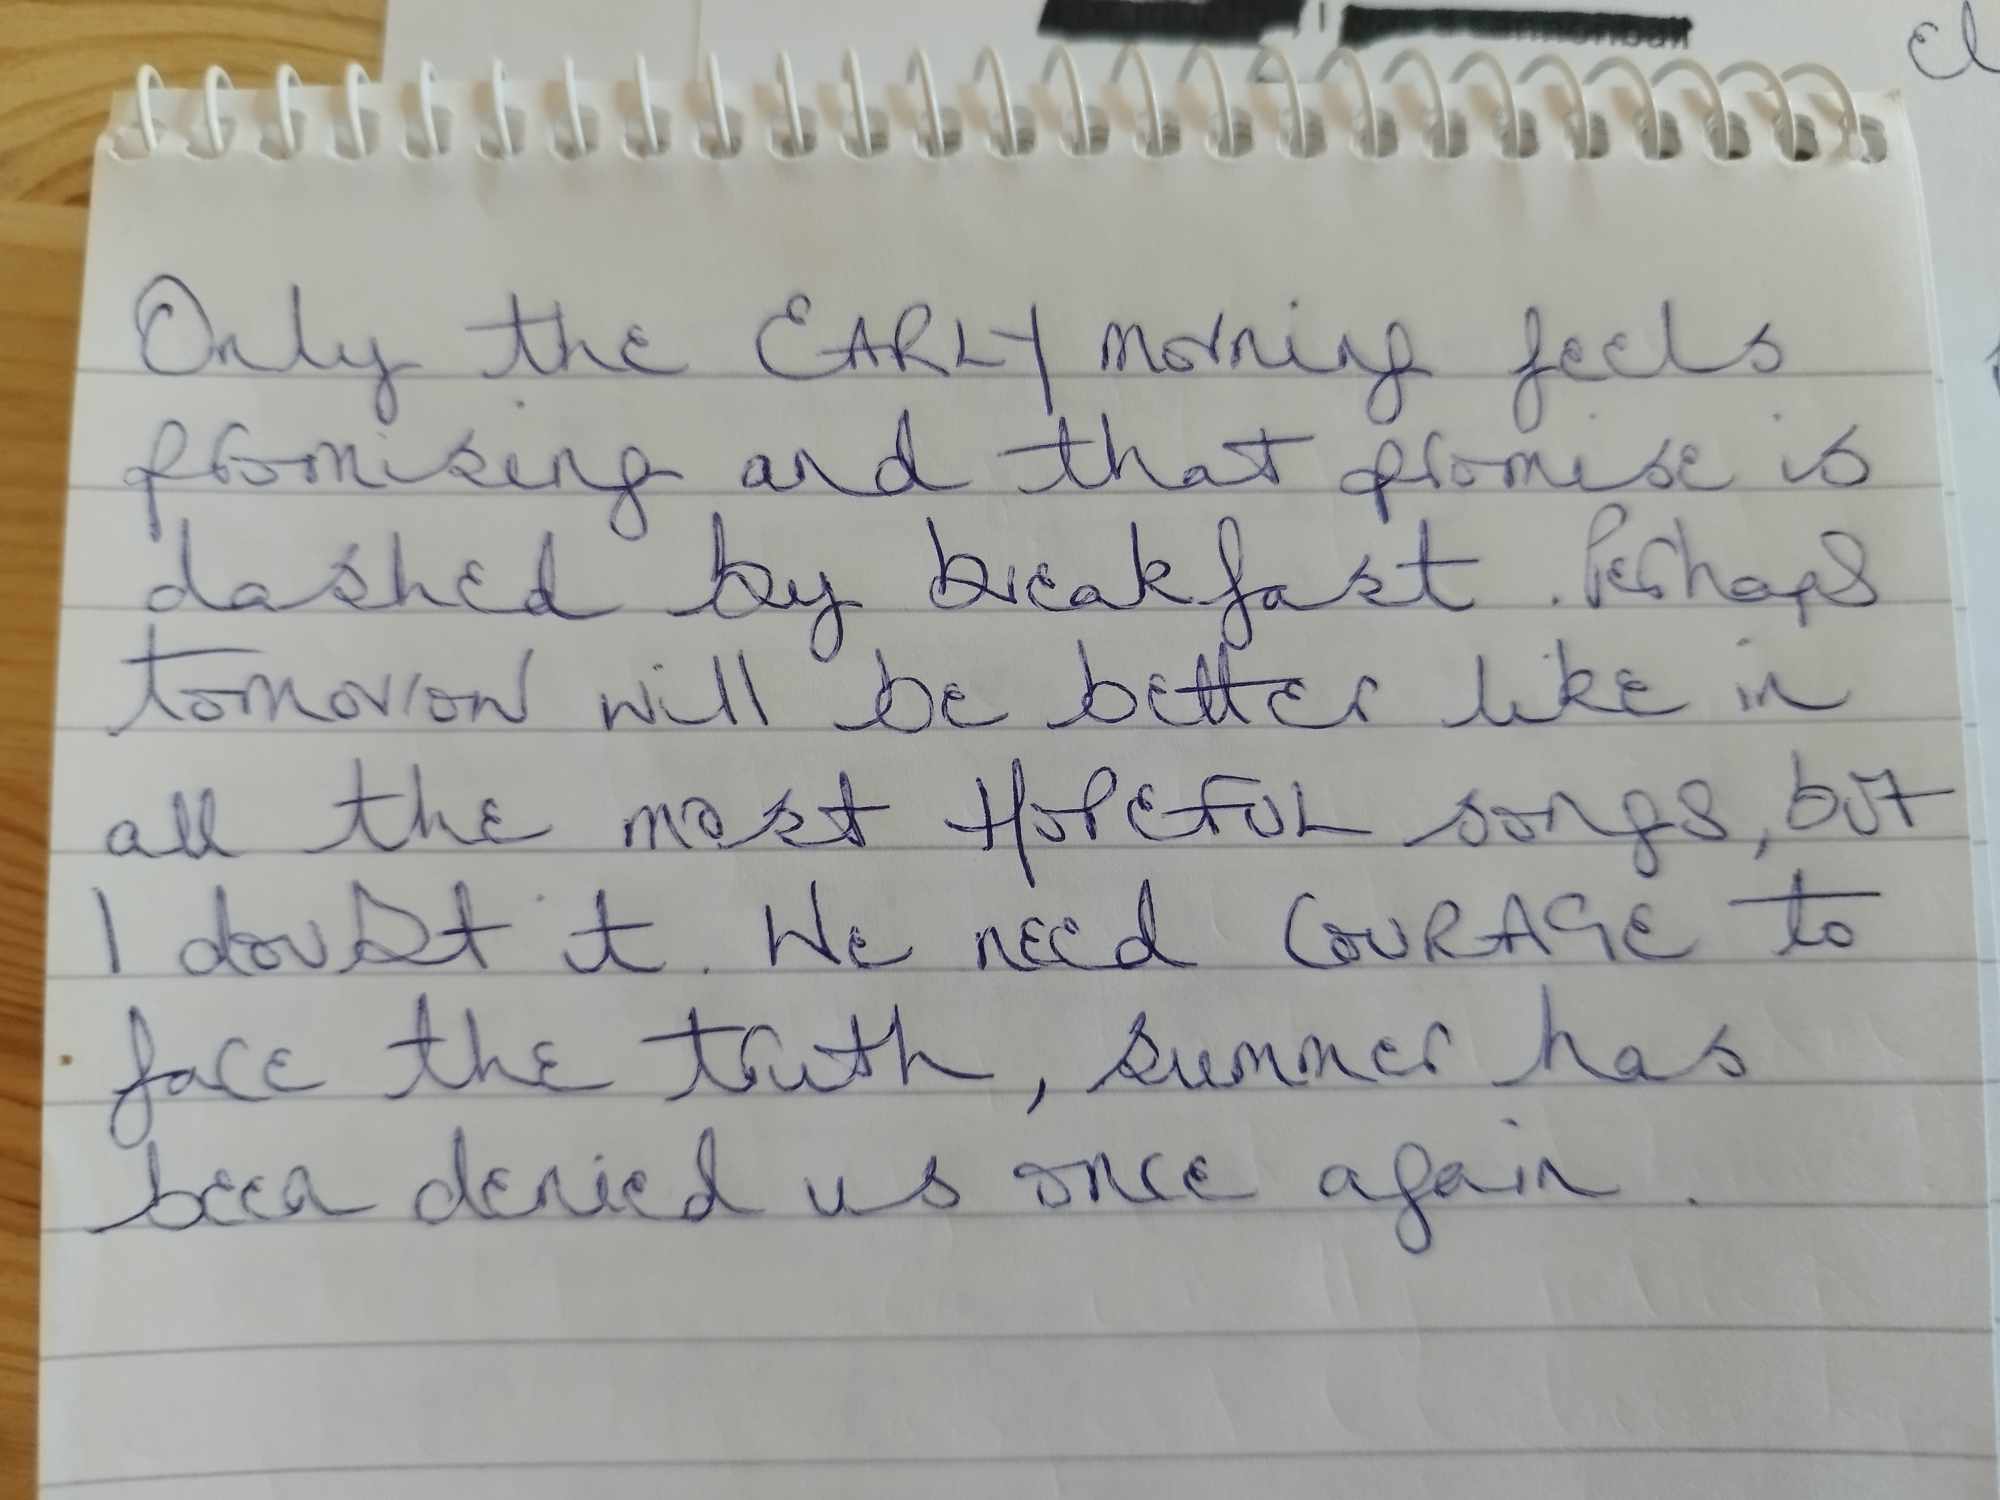 Only the EARLY morning feels
promising and that promise is
dashed by breakfast. Perhaps
tomorrow will be better like in
all the most HOPEFUL songs, but
I doubt it. We need COURAGE to
face the truth, summer has
been denied us once again.